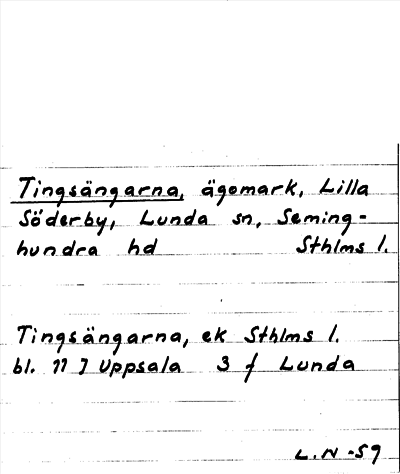 Tingsängarna, ägomark, Lilla
Söderby, Lunda sn, Seming-
hundra hd Sthlms l.
Tingsängarna, ek Sthlms l.
bl. 11 I Uppsala 3 f Lunda
L.N -59